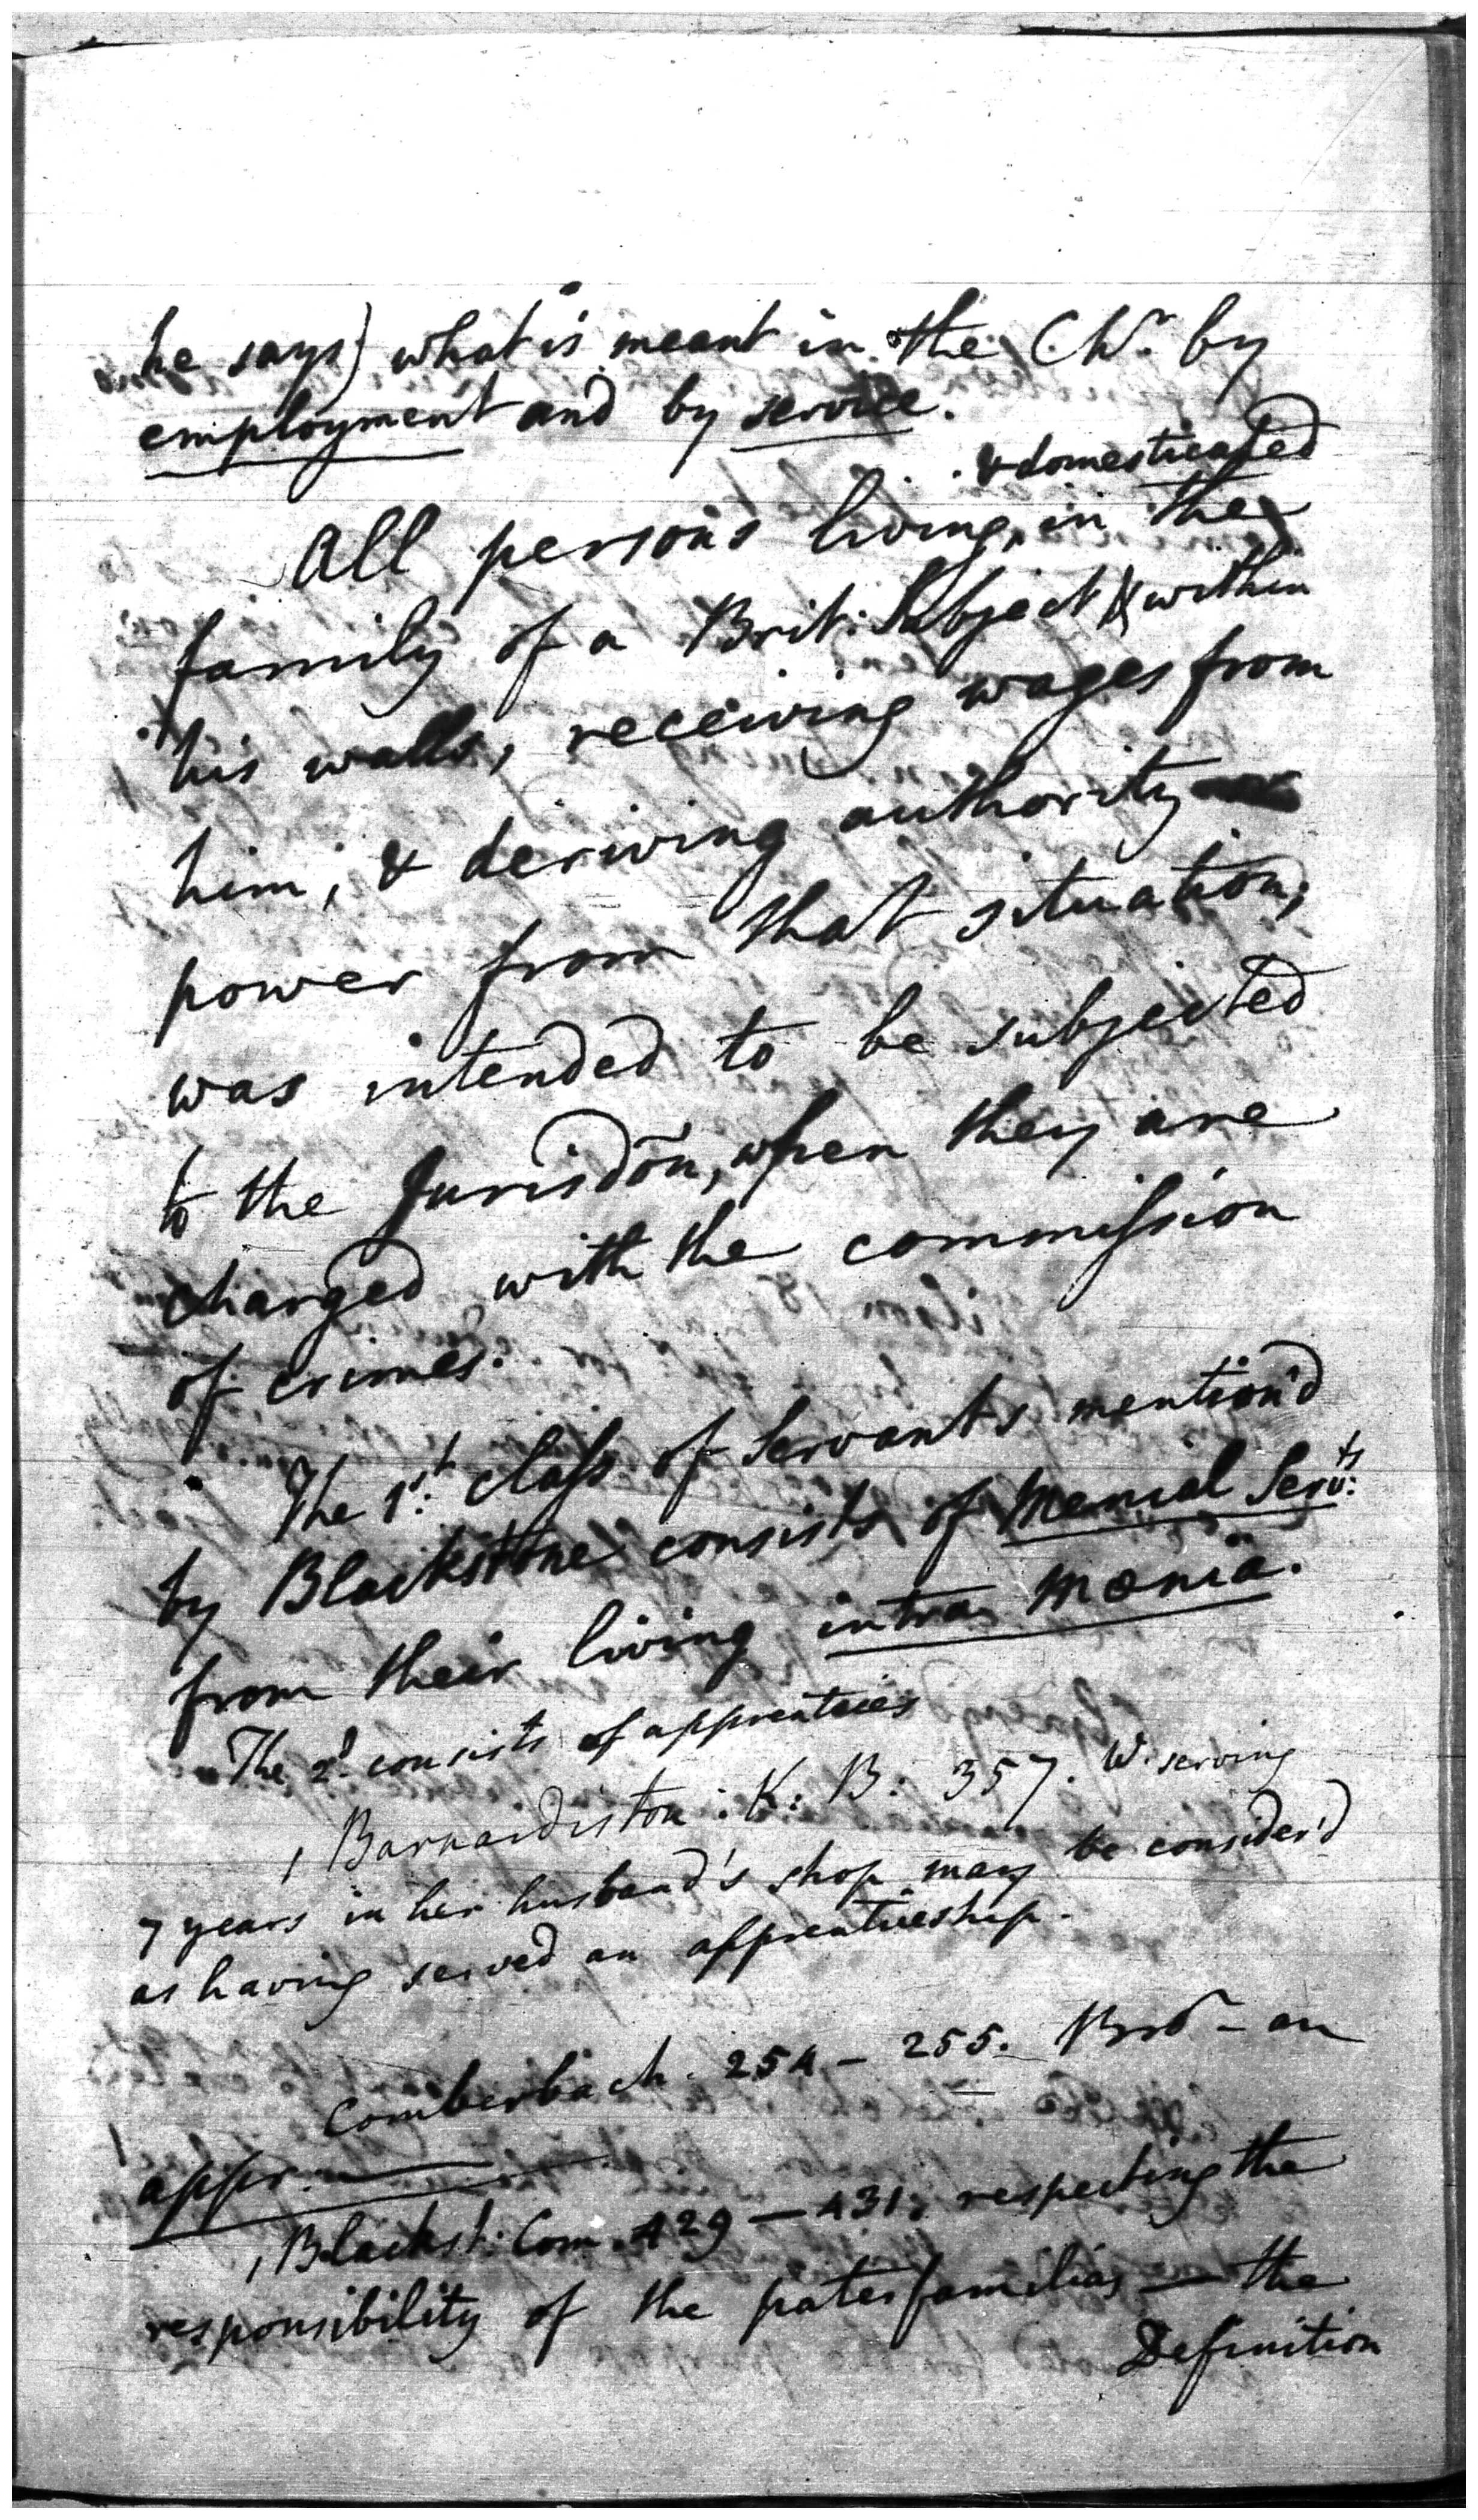 he says) what is meant in the Chr. by
employment and by service.
& domesticated
All persons living, in the
family of a Brit: Subject & within
his walls, receiving wages from
him, & deriving authority
power from that situation,
was intended to be subjected
to the Jurisdõn, when they are
charged with the commission
of crimes.
The 1st: class of Servants mention'd
by Blackstone consists of Menial Servts:
from their living intra mœnia.
The 2d. consists of apprentices
1 Barnardiston: K: B: 357. W. serving
7 years in her husband's shop may be consider'd
as having served an apprenticeship.
Comberbach. 254 - 255. - an
appr.
1 Blackst: Com. 429 - 431, respecting the
responsibility of the paterfamilias — the
Definition